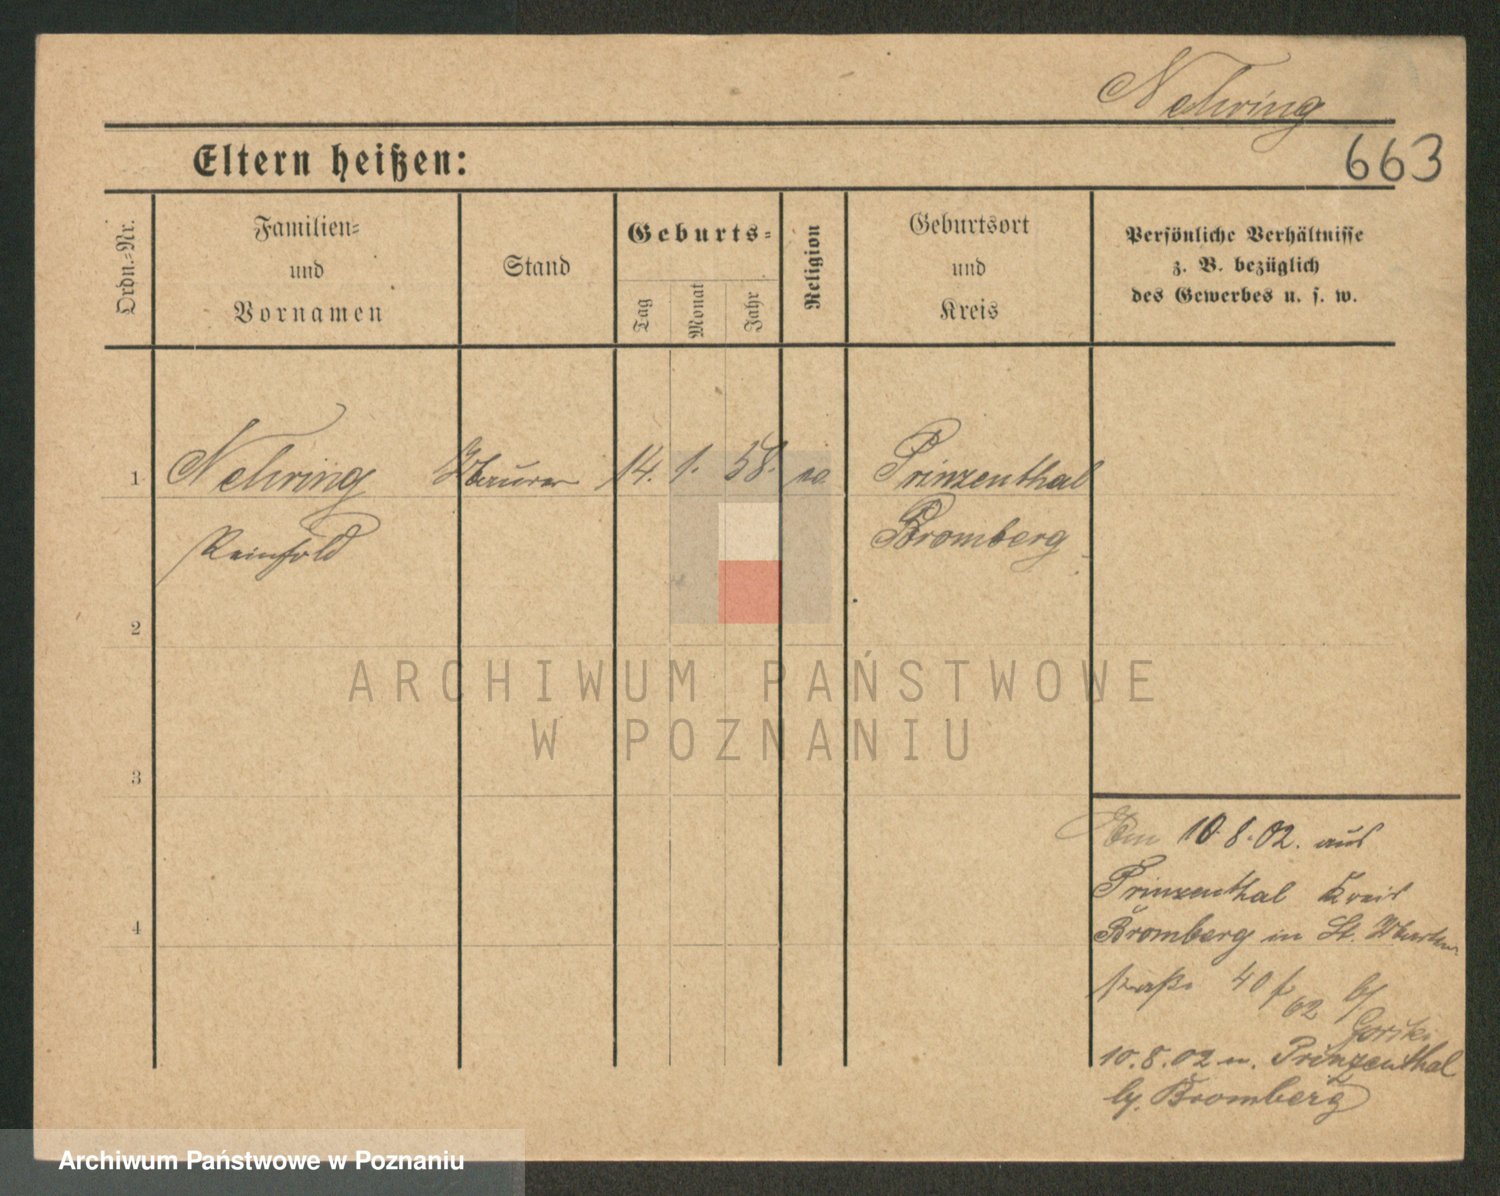 Nehring
663
Eltern heißen:
Ordn.-Nr.
Familien-
und
Vornamen
Stand
Geburts-
Tag
Monat
Jahr
Religion
Geburtsort
und
Kreis
Persönliche Verhältnisse
z. B. bezüglich
des Gewerbes u. s. w.
1 Nehring Maurer 14. 1. 58. Prinzenthal
Reinhold Bromberg
2
ARCHIWUM PAŃSTWOWE
W POZNANIU
3
Am 10.8.02. aus
Prinzenthal Kreis
4 Bromberg in St. Martin
straße 40 b/
62 Gorski
10.8.02 n. Prinzenthal
by. Bromberg
Archiwum Państwowe w Poznaniu